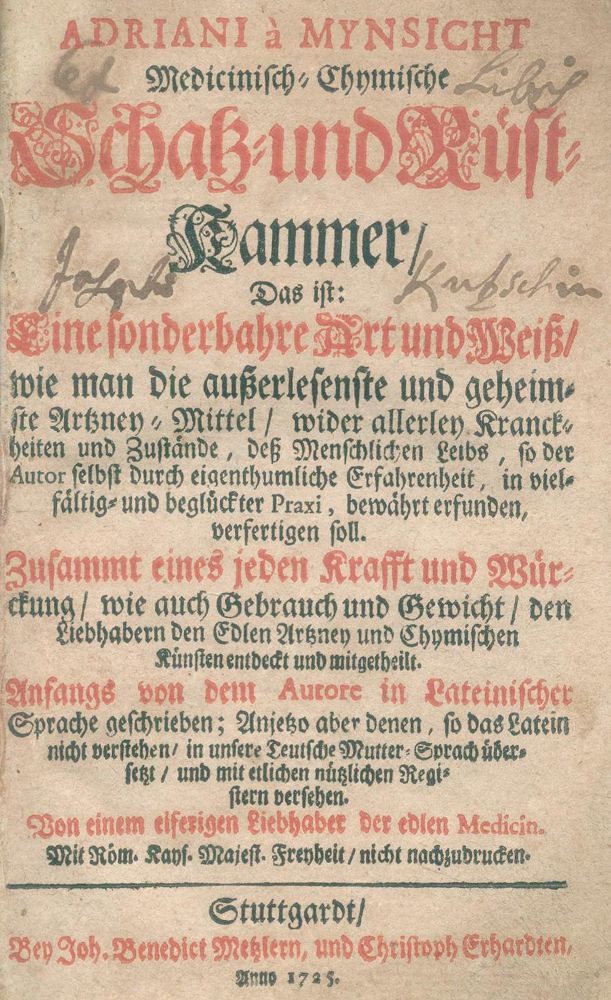 ADRIANI à MYNSICHT
Medicinisch-Chymische
Ex Libris
Schatz-und Rüst-
Kammer/
Josephi
Das ist:
Eine sonderbahre Art und Weiß/
wie man die außerlesenste und geheim-
ste Artzney-Mittel/ wider allerley Kranck-
heiten und Zustände, deß Menschlichen Leibs, so der
Autor selbst durch eigenthumliche Erfahrenheit, in viel-
fältig- und beglückter Praxi, bewährt erfunden,
verfertigen soll.
Zusammt eines jeden Krafft und Wür-
ckung/ wie auch Gebrauch und Gewicht/ den
Liebhabern den Edlen Artzney und Chymischen
Künsten entdeckt und mitgetheilt.
Anfangs von dem Autore in Lateinischer
Sprache geschrieben; Anjetzo aber denen, so das Latein
nicht verstehen/ in unsere Teutsche Mutter-Sprach über-
setzt/ und mit etlichen nützlichen Regi-
stern versehen.
Von einem eiferigen Liebhaber der edlen Medicin.
Mit Röm. Kays. Majest. Freyheit/ nicht nachzudrucken.
Stuttgardt/
Bey Joh. Benedict Metzlern, und Christoph Erhardten,
Anno 1725.